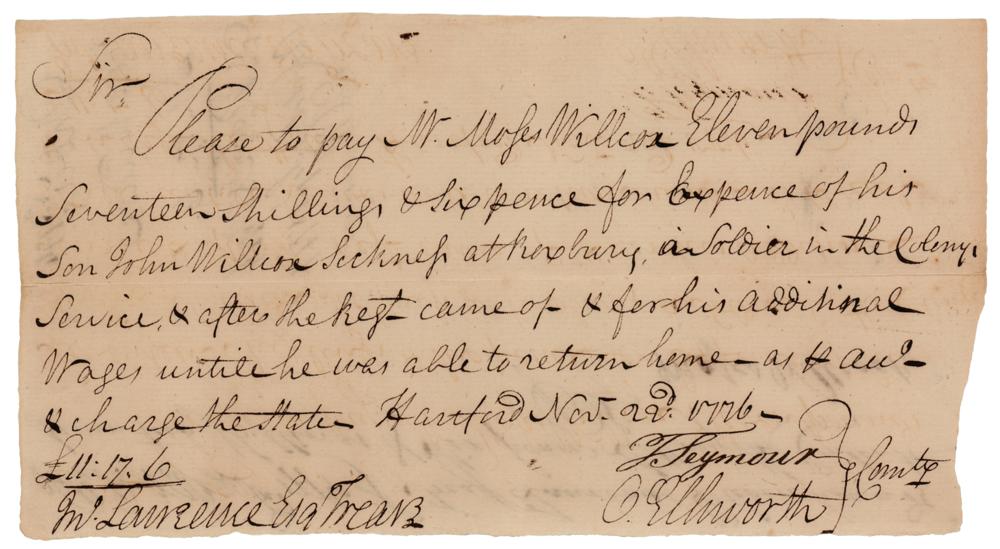 Sir
Please to pay Mr. Moses Willcox Eleven pounds
Seventeen Shillings & Sixpence for Expence of his
Son John Willcox Sickness at Roxbury, a Soldier in the Colony,
Service, & after the Regt came of & for his additinal
Wages untill he was able to return home – as
& charge the State Hartford Novr. 22d. 1776 –
£11:17.6
T Seymour
O. Ellsworth } Comtee
Mr. Lawrence Esqr Treasr